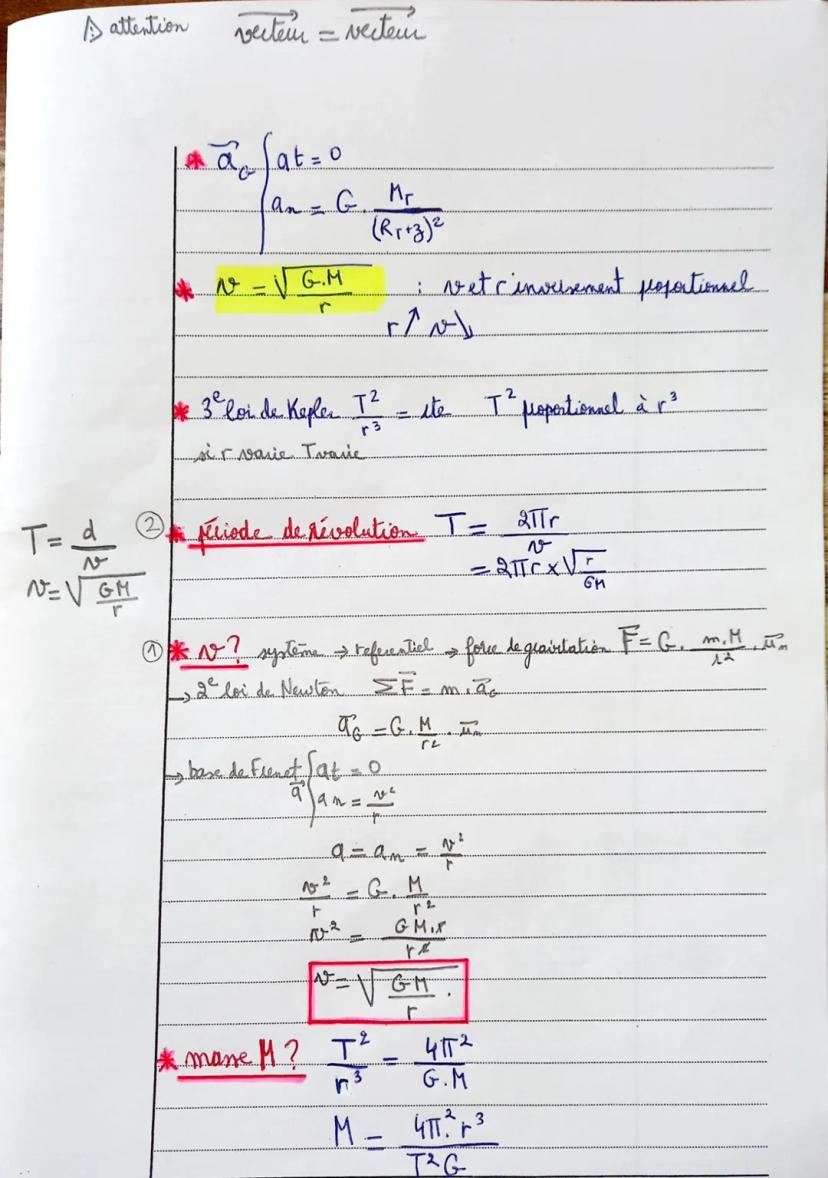 ⚠ attention vecteur = vecteur
* a⃗G { at = 0
an = G. MT/(RT+z)²
* v = √(G.M/r) : v et r inversement proportionnel
r ↗ v ↘
* 3e loi de Kepler T²/r³ = cte T² proportionnel à r³
si r varie T varie
② * période de révolution T = 2πr/v
= 2πr × √(r/GM)
T = d/v
v = √(GM/r)
① * v ? système → referentiel → force de gravitation F⃗ = G. m.M/r² . u⃗n
→ 2e loi de Newton ΣF⃗ = m.a⃗G
a⃗G = G. M/r² . u⃗n
→ base de Frenet a⃗ { at = 0
an = v²/r
a = an = v²/r
v²/r = G. M/r²
v² = GM.r/r²
v = √(GM/r) .
* masse M ? T²/r³ = 4π²/G.M
M = 4π².r³/T²G